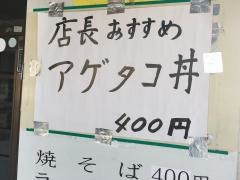 店長おすすめ
アゲタコ丼
400円
焼そば400円